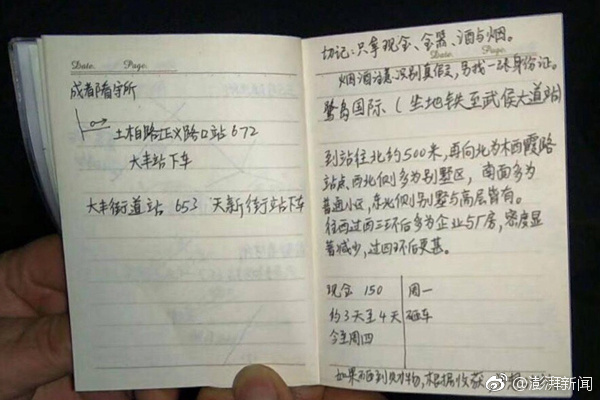 Date. Page.
成都看守所
土柏路正义路口站 672
大丰站下车
大丰街道站 653 天新街站下车
切记:只拿现金、金器、酒与烟。
Date. Page.
烟酒注意识别真假,另找一张身份证。
鹭岛国际 (坐地铁至武侯大道站)
到站往北约500米,再向北为木西霞路
站点、西北侧多为别墅区, 南面多为
普通小区,东北侧别墅与高层皆有。
往西过西三环后多为企业与厂房,密度显
著减少,过四环后更甚。
现金 150 周一
约3天至4天 砸车
今至周四
如果 到财物,根据收获
@澎湃新闻